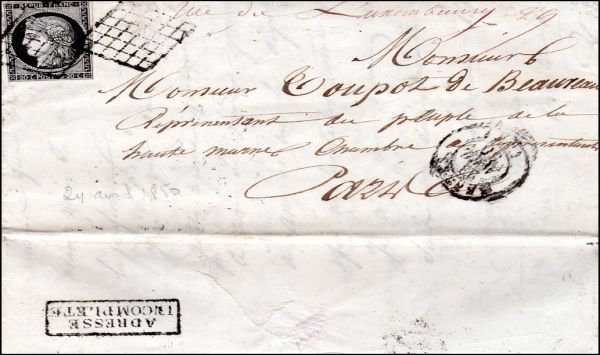 REPUB. FRANC.
20 C. POSTE 20 C.
Rue de Luxembourg 29
Monsieur
Monsieur Toupot de Beaureau
Représentant du peuple de la
haute marne Chambre
Paris
24 avril 1850
ADRESSE
INCOMPLETE